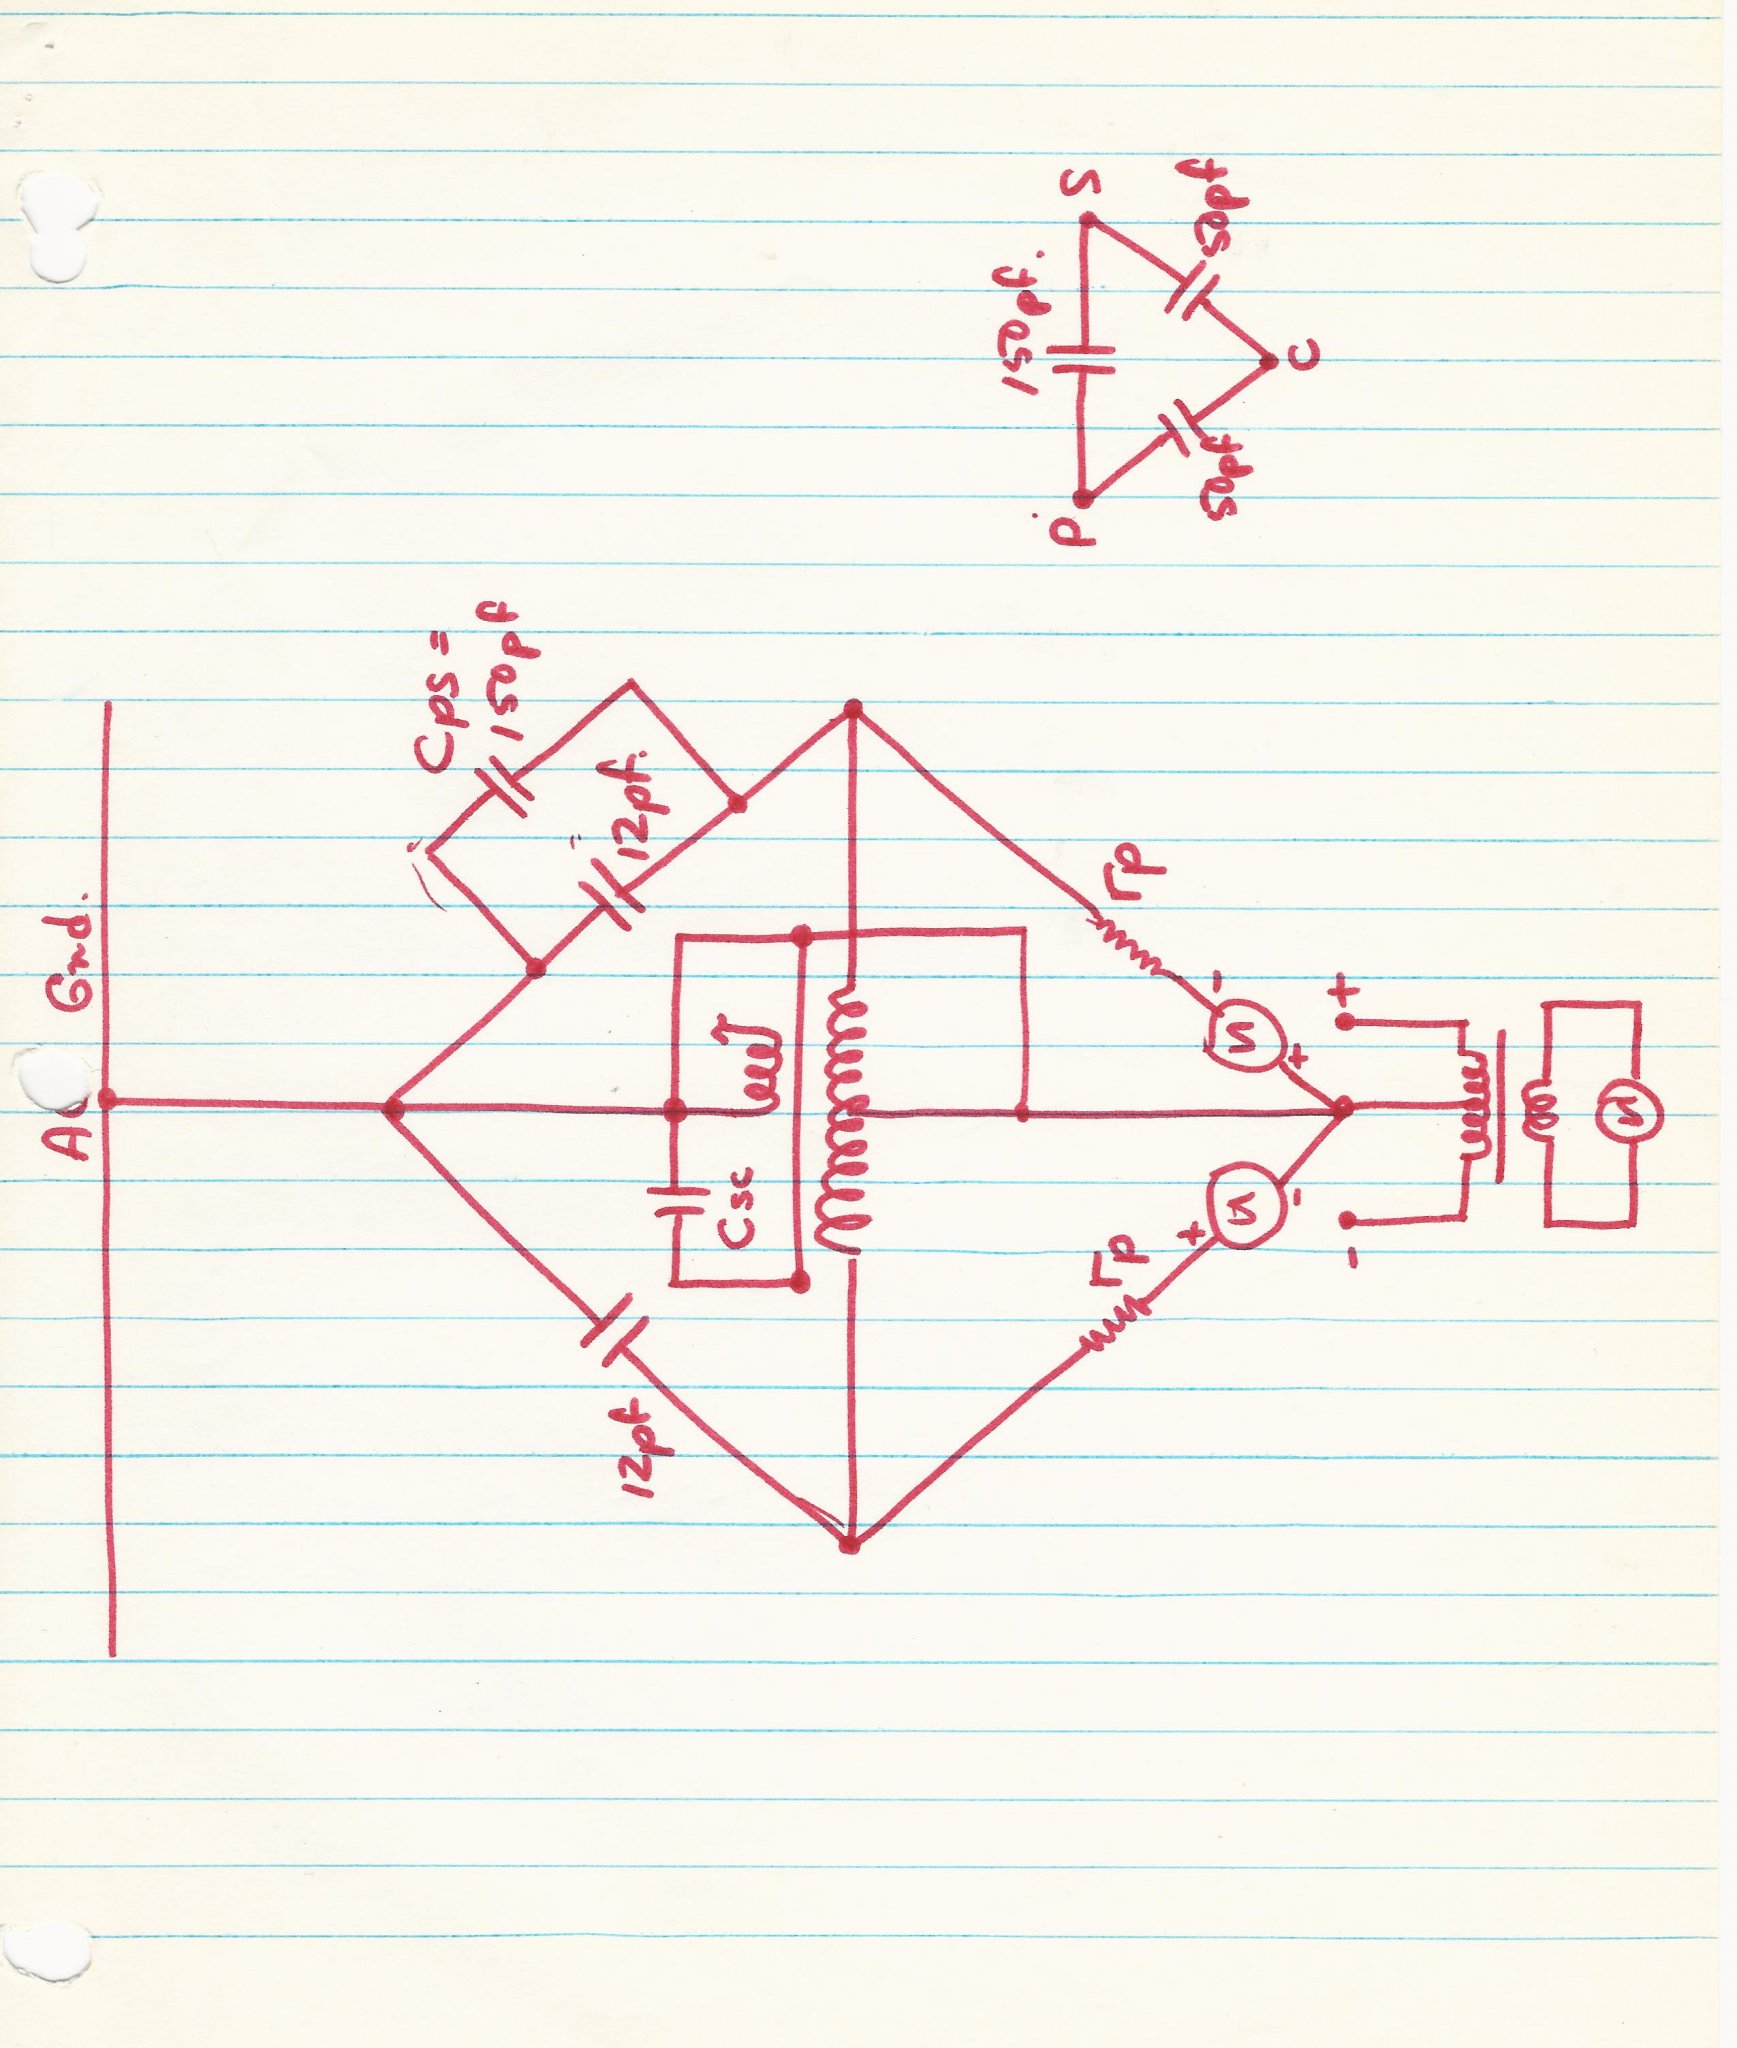 Ac Gnd.
Cps =
150pf
12pf
12pf.
Csc
150pf.
P
S
50pf
50pf
C
rp
rp
+
-
-
+
-
+